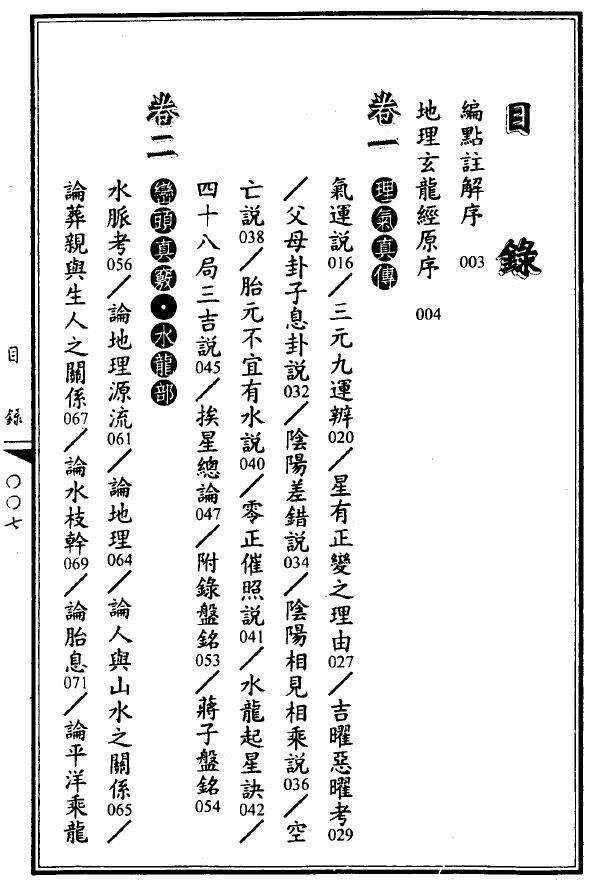 目錄
編點註解序 003
地理玄龍經原序 004
卷一 理氣真傳
氣運說016／三元九運辨020／星有正變之理由027／吉曜惡曜考029
／父母卦子息卦說032／陰陽差錯說034／陰陽相見相乘說036／空
亡說038／胎元不宜有水說040／零正催照說041／水龍起星訣042／
四十八局三吉說045／挨星總論047／附錄盤銘053／蔣子盤銘054
卷二 巒頭真竅・水龍部
水脈考056／論地理源流061／論地理064／論人與山水之關係065／
論葬親與生人之關係067／論水枝幹069／論胎息071／論平洋乘龍
目錄
○○七